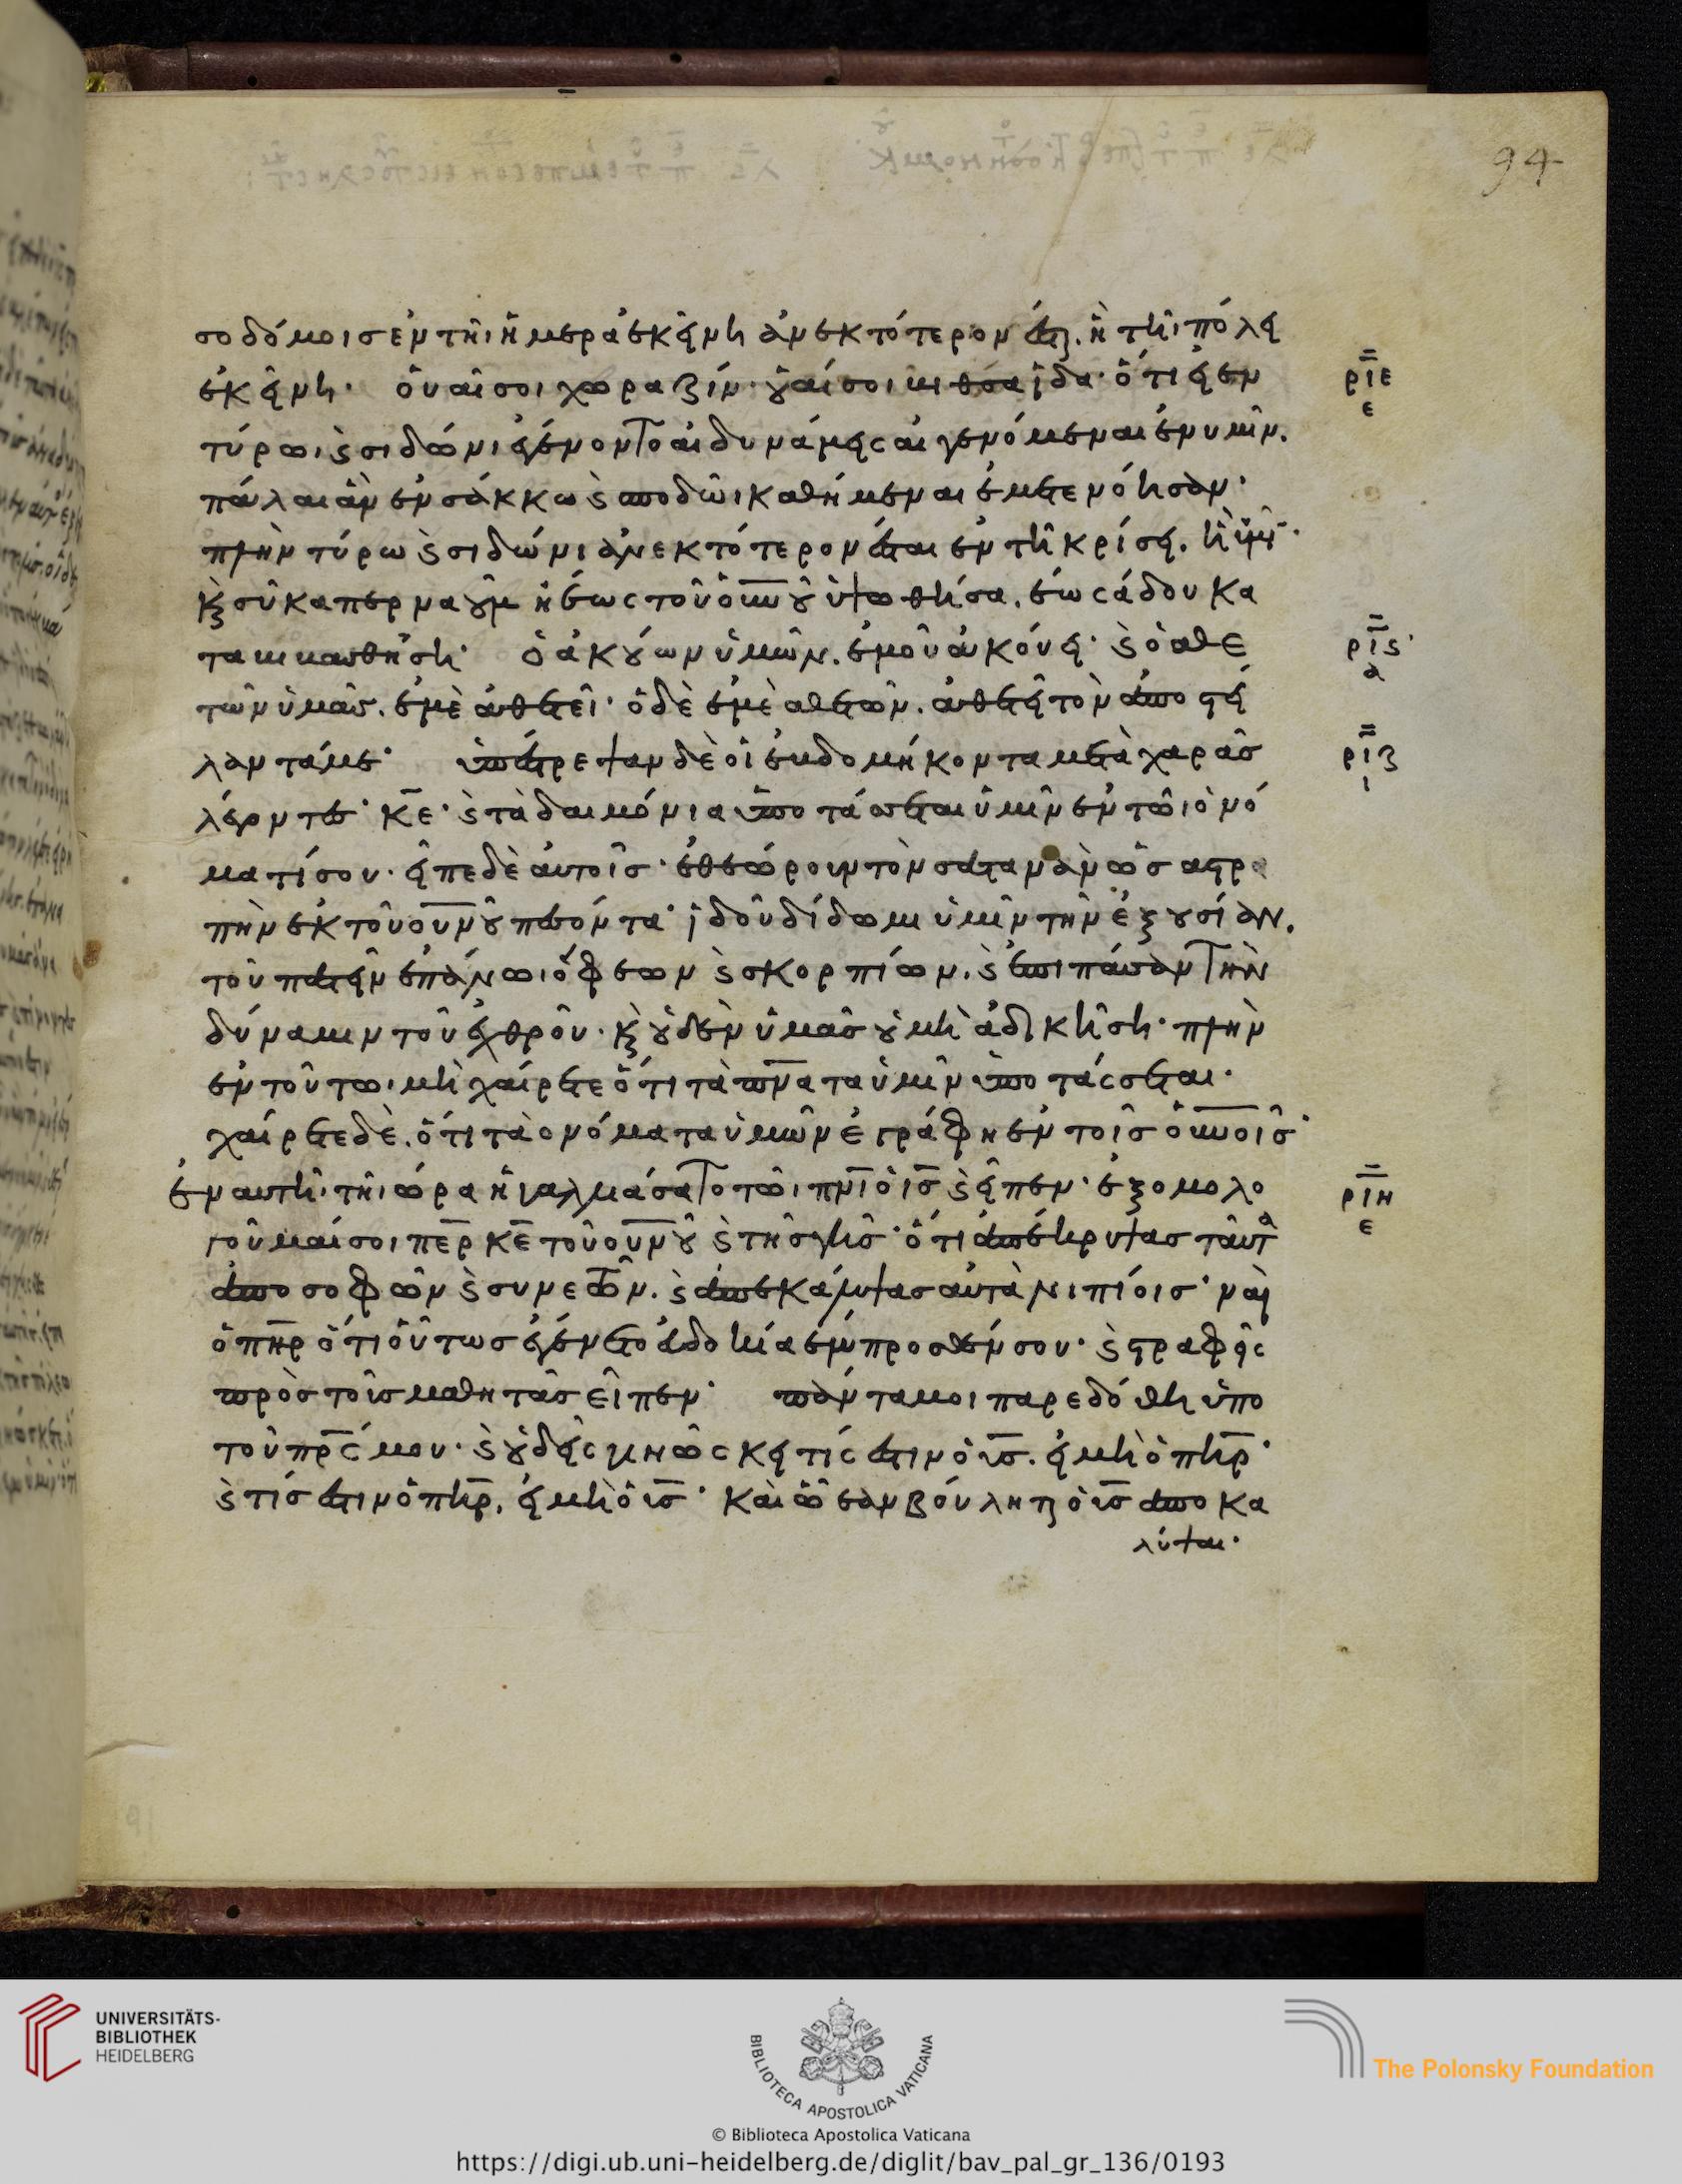 94
σοδόμοις ἐν τῆι ἡμέρα ἐκείνη ἀνεκτότερον ἔσται. ἢ τῆι πόλει
ἐκείνη· οὐαί σοι χωραζίν· οὐαί σοι βηθσαϊδα· ὅτι εἰ ἐν
ρ̅ι̅ε̅
ε
τύρωι ϗ σιδῶνι ἐγένοντο αἱ δυνάμεις αἱ γενόμεναι ἐν υμῖν.
πάλαι ἂν ἐν σάκκω ϗ σποδῶι καθήμεναι ἐμετενόησαν·
πλὴν τύρω ϗ σιδώνι ἀνεκτότερον ἔσται ἐν τῆ κρίσει. ἢ ὑμῖν·
ϗ σὺ καπερναοὺμ ἡ ἕως τοῦ ο̅υ̅ν̅ο̅υ̅ ὑψωθῆσα, ἕως άδου κα
ταβιβασθήση· ὁ ἀκούων ὑμῶν. ἐμοῦ ἀκούει· ϗ ὁ αθε
ρ̅ι̅ς̅
α
τῶν ὑμᾶς. ἐμὲ ἀθετεῖ· ὁ δὲ ἐμὲ αθετῶν. ἀθετεῖ τὸν ἀποστεί
λαντά με· ὑπέστρεψαν δὲ οἱ ἑβδομήκοντα μετὰ χαρᾶς
ρ̅ι̅ζ̅
ι
λέγοντες· κ̅ε̅· ϗ τὰ δαιμόνια ὑποτάσσεται ὑμῖν ἐν τῶι ὀνό
ματί σου· εἶπε δὲ αὐτοῖς· ἐθεώρουν τὸν σατανὰν ὡς αστρα
πὴν ἐκ τοῦ ο̅υ̅ν̅ο̅υ̅ πεσόντα· ἰδοὺ δίδωμι ὑμῖν τὴν ἐξουσίαν.
τοῦ πατεῖν ἐπάνωι ὄφεων ϗ σκορπίων. ϗ ἐπι πάσαν τὴν
δύναμιν τοῦ ἐχθροῦ· ϗ οὐδὲν ὑμᾶς οὐ μὴ ἀδικήση· πλὴν
ἐν τούτωι μὴ χαίρετε ὅτι τὰ π̅ν̅ατα ὑμῖν ὑποτάσσεται·
χαίρετε δὲ. ὅτι τὰ ονόματα ὑμῶν ἐγράφη ἐν τοῖς ο̅υ̅ν̅ο̅ι̅ς̅·
ἐν αυτῆι τῆι ώρα ἠγαλλιάσατο τῶι π̅ν̅ι̅ ὁ ι̅ς̅ ϗ εἶπεν· ἐξομολο
ρ̅ι̅η̅
ε
γοῦμαί σοι π̅ε̅ρ̅ κ̅ε̅ τοῦ ο̅υ̅ν̅ο̅υ̅ ϗ τῆς γῆς· ὅτι ἀπέκρυψας ταῦτα
ἀπο σοφῶν ϗ συνετῶν. ϗ ἀπεκάλυψας αὐτὰ νιπίοις· ναὶ
ὁ π̅η̅ρ̅ ὅτι οὕτως ἐγένετο εὐδοκία έμπροσθέν σου· ϗ στραφεὶς
πρὸς τοῖς μαθητὰς εἶπεν· πάντα μοι παρεδόθη ὑπο
τοῦ π̅ρ̅ς̅ μου· ϗ οὐδεὶς γινώσκει τίς ἐστιν ὁ ι̅ς̅. εἰ μὴ ὁ π̅η̅ρ̅·
ϗ τίς ἐστιν ὁ π̅η̅ρ̅, εἰ μὴ ὁ ι̅ς̅· καὶ ὧ ἐὰν βούληται ὁ ι̅ς̅ ἀποκα
λύψαι·
UNIVERSITÄTS-
BIBLIOTHEK
HEIDELBERG
BIBLIOTECA APOSTOLICA VATICANA
The Polonsky Foundation
© Biblioteca Apostolica Vaticana
https://digi.ub.uni-heidelberg.de/diglit/bav_pal_gr_136/0193